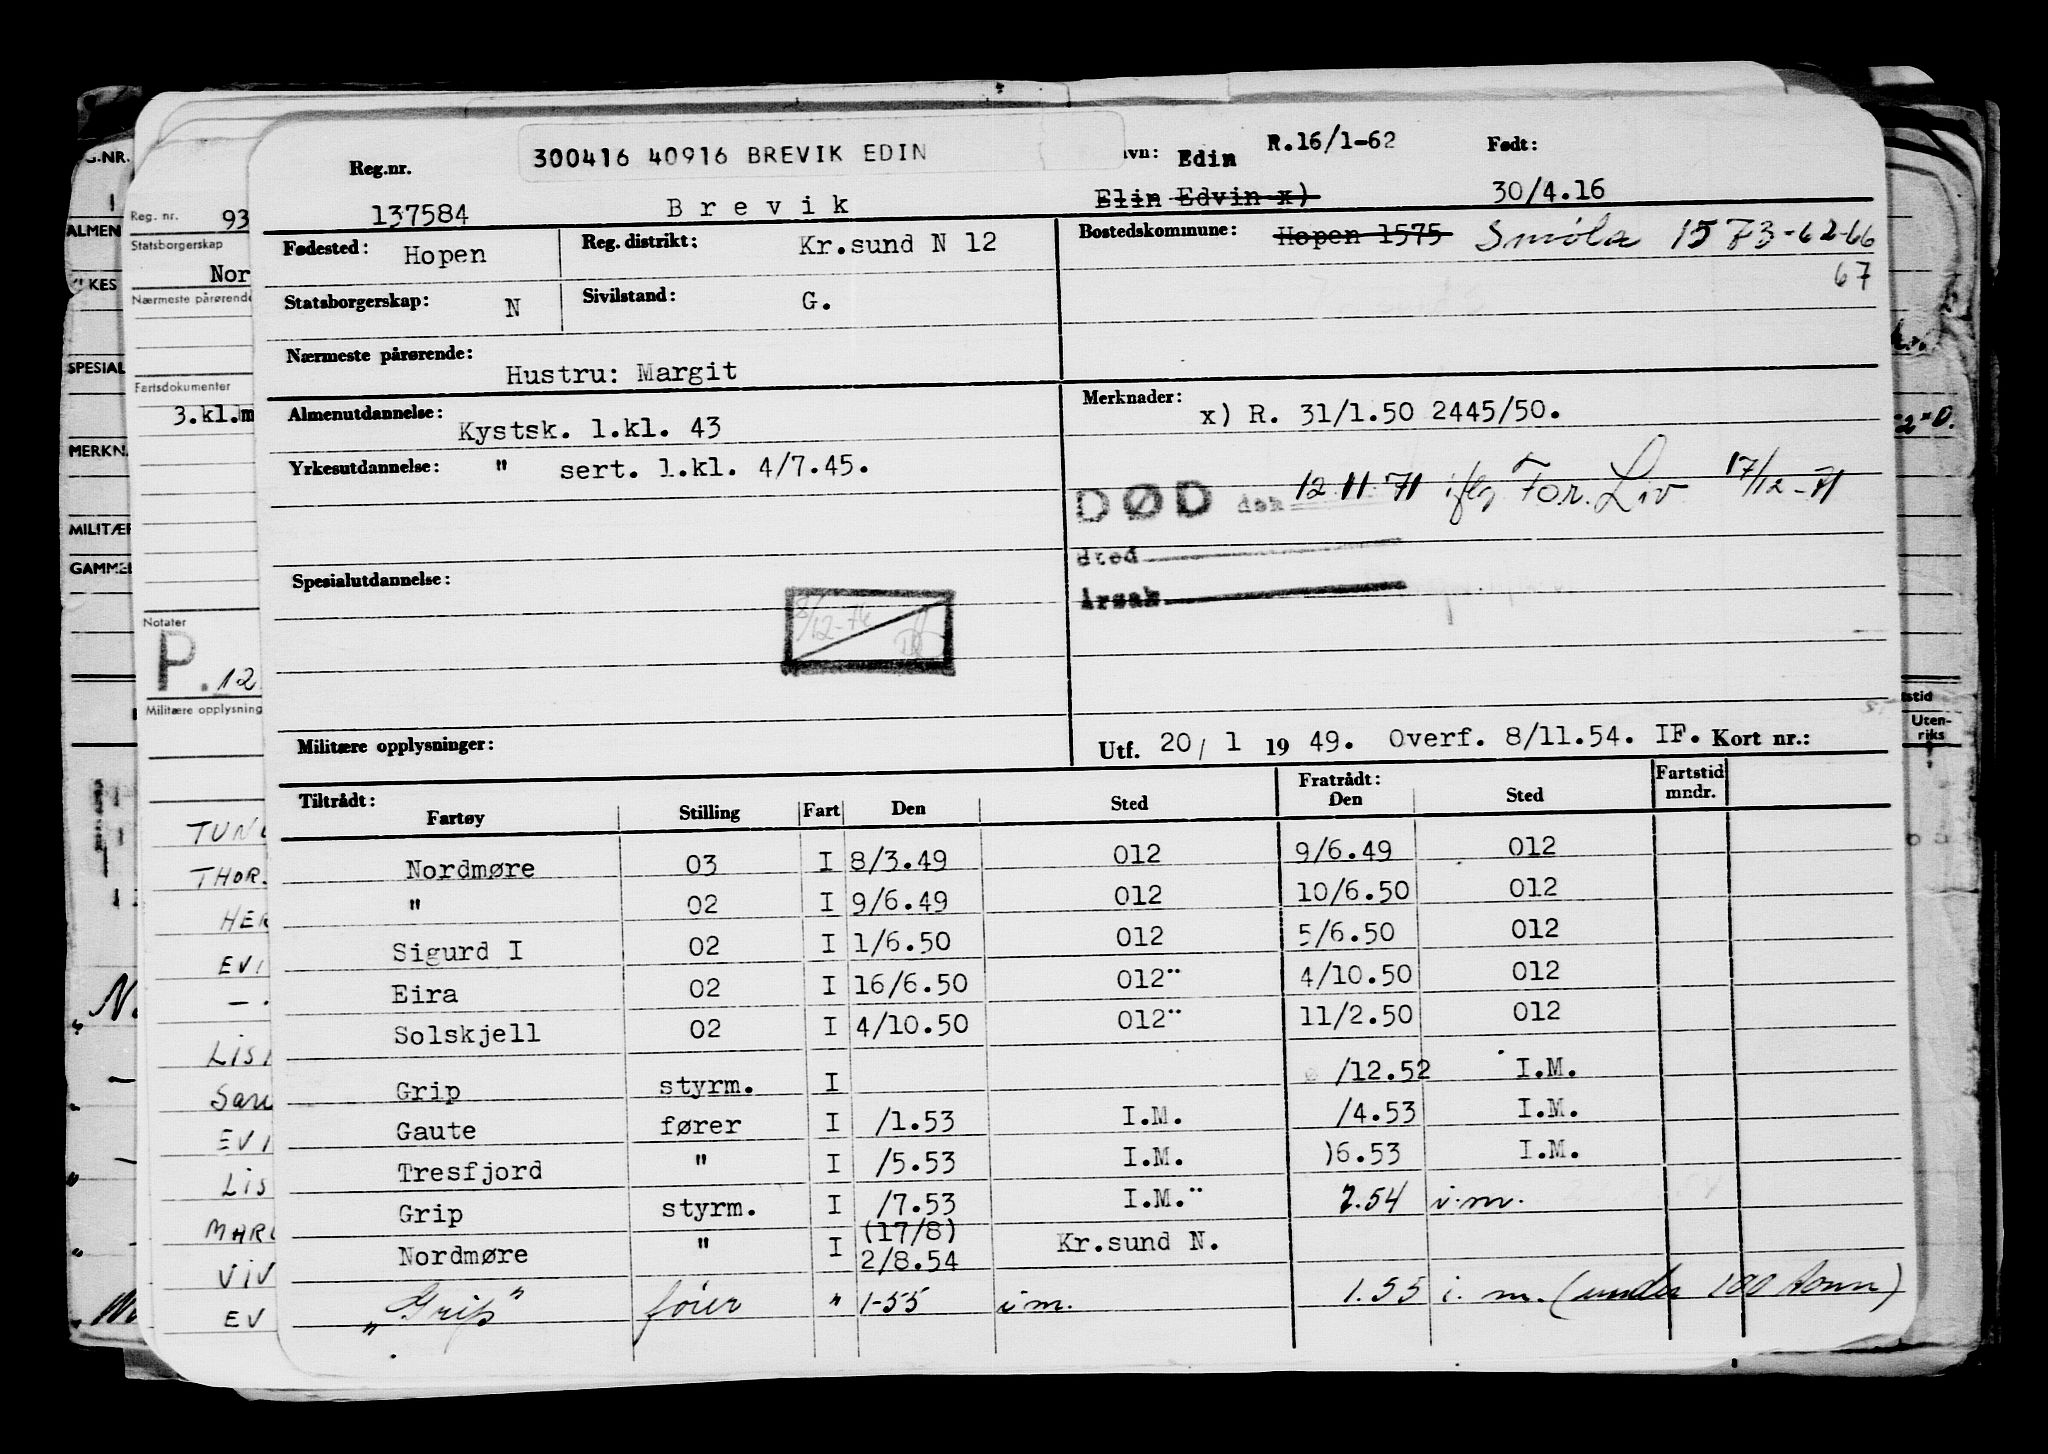 300416 40916 BREVIK EDIN
Reg.nr. 137584
Brevik
avn: Edin R.16/1-62
Elin Edvin x)
Født: 30/4.16
Fødested: Hopen
Reg. distrikt: Kr.sund N 12
Bostedskommune: Hopen 1575 Smöla 1573-62-66
67
Statsborgerskap: N
Sivilstand: G.
Nærmeste pårørende: Hustru: Margit
Almenutdannelse: Kystsk. 1.kl. 43
Merknader: x) R. 31/1.50 2445/50.
Yrkesutdannelse: " sert. 1.kl. 4/7.45.
DØD den 12.11.71 iflg For. Liv 17/12-71
sted
Årsak
Spesialutdannelse:
8/12-74
Militære opplysninger:
Utf. 20/ 1 19 49. Overf. 8/11.54. IF. Kort nr.:
Tiltrådt: Fratrådt:
Fartøy Stilling Fart Den Sted Den Sted Fartstid mndr.
Nordmøre 03 I 8/3.49 012 9/6.49 012
" 02 I 9/6.49 012 10/6.50 012
Sigurd I 02 I 1/6.50 012 5/6.50 012
Eira 02 I 16/6.50 012" 4/10.50 012
Solskjell 02 I 4/10.50 012" 11/2.50 012
Grip styrm. I /12.52 I.M.
Gaute fører I /1.53 I.M. /4.53 I.M.
Tresfjord " I /5.53 I.M. )6.53 I.M.
Grip styrm. I /7.53 I.M." 7.54 i.m.
Nordmøre " I (17/8) 2/8.54 Kr.sund N.
"Grip" fører " 1-55 i m. 1.55 i. m. (under 100 tonn)
G.NR.
ALMEN
YRKES
SPESIAL
MERKN.
MILITÆR
GAMMEL
Reg. nr. 93
Statsborgerskap
Nor
Nærmeste pårørende
Fartsdokumenter
3.kl.m
Notater
P. 12
Militære opplysning
TUN
THOR.
HER
EVI
LIS
San
EVI
LIS
MAR
VIV
EV
tstid
Uten-
riks